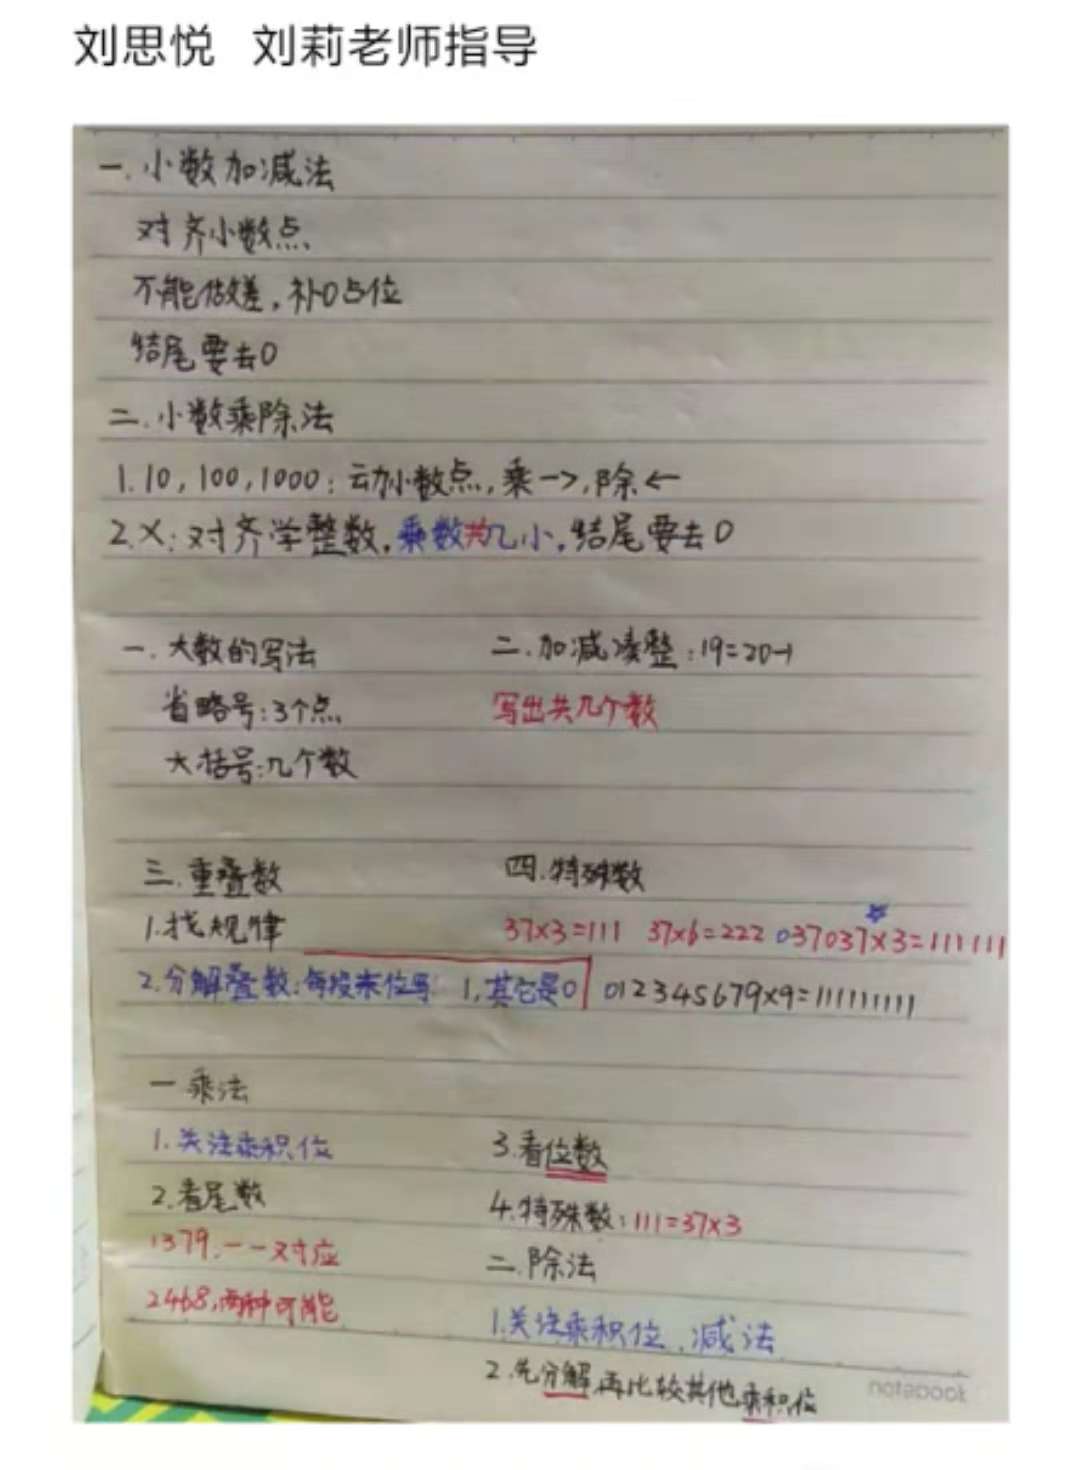 刘思悦 刘莉老师指导
一.小数加减法
对齐小数点
不能做差,补0占位
结尾要去0
二.小数乘除法
1.10,100,1000:动小数点,乘→,除←
2.×:对齐学整数,乘数共几小,结尾要去0
一.大数的写法
省略号:3个点
大括号:几个数
二.加减凑整:19=20-1
写出共几个数
三.重叠数
1.找规律
2.分解叠数:每段末位写1,其它是0
四.特殊数
37×3=111 37×6=222 037037×3=111111
012345679×9=111111111
一乘法
1.关注乘积位
2.看尾数
1379,一一对应
2468,两种可能
3.看位数
4.特殊数:111=37×3
二.除法
1.关注乘积位,减法
2.先分解,再比较其他乘积位
notebook